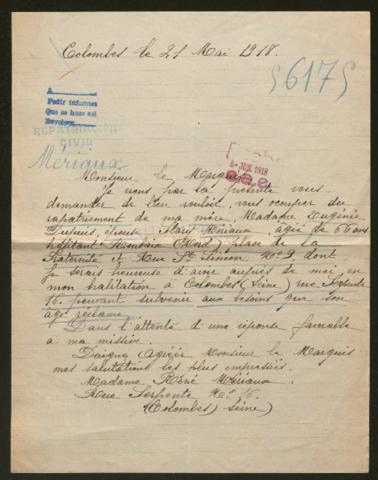 Colombes le 21 Mai 1918.
56175
A
Pedir informes
Que se hace así
REPATRIACIÓN
CIVIL
Mériaux
JUN 1918
Monsieur le Marquis
Je viens par la présente vous
demander de bien vouloir vous occuper du
rapatriement de ma mère, Madame Eugénie
Dupuis, épouse Mériaux, âgée de 66 ans
habitant Roubaix (Nord) place de la
Fraternité et Rue St Simon No 9, dont
je serais heureuse d'avoir auprès de moi en
mon habitation à Colombes (Seine) rue Serpente
16. pouvant subvenir aux besoins que son
âge réclame.
Dans l'attente d'une réponse favorable
à ma missive.
Daignez agréer Monsieur le Marquis
mes salutations les plus empressées.
Madame René Mériaux
Rue Serpente No 16.
(Colombes) Seine)